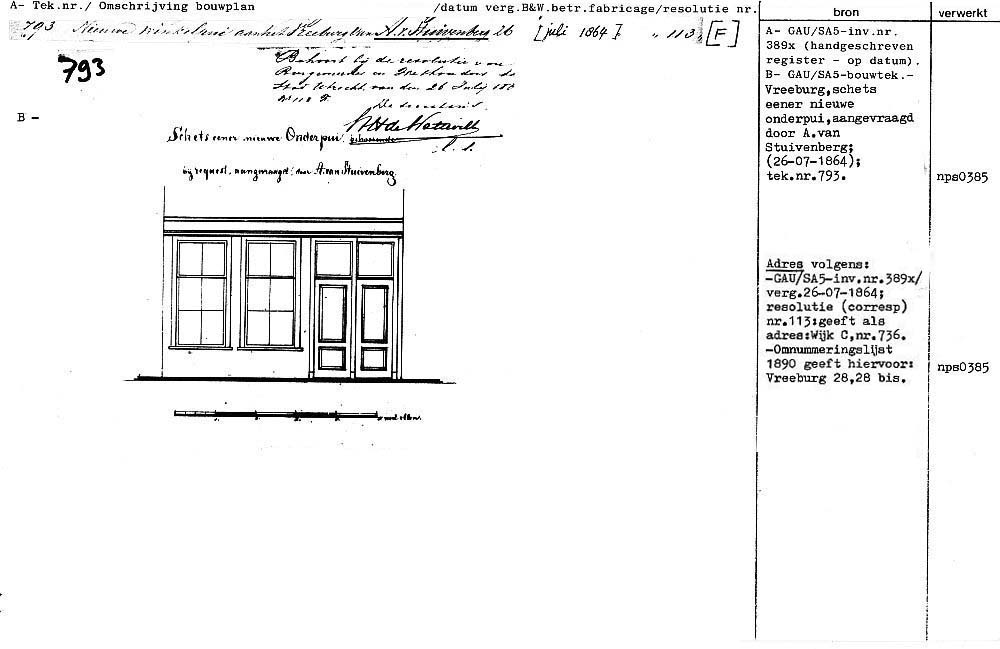 A- Tek.nr./ Omschrijving bouwplan /datum verg.B&W.betr.fabricage/resolutie nr.
bron
verwerkt
793 Nieuwe winkelpui aan het Vreeburg van A. v. Stuivenberg 26 [juli 1864] " 113 [F]
793
Behoort bij de resolutie van
Burgemeester en Wethouders der
Stad Utrecht van den 26 Julij 186
No 113 F.
De Secretaris
B -
Schets eener nieuwe Onderpui
bij request, aangevraagd door A. van Stuivenberg.
A- GAU/SA5-inv.nr.
389x (handgeschreven
register - op datum).
B- GAU/SA5-bouwtek.-
Vreeburg,schets
eener nieuwe
onderpui,aangevraagd
door A.van
Stuivenberg;
(26-07-1864);
tek.nr.793.
nps0385
Adres volgens:
-GAU/SA5-inv.nr.389x/
verg.26-07-1864;
resolutie (corresp)
nr.113:geeft als
adres:Wijk C,nr.736.
-Omnummeringslijst
1890 geeft hiervoor:
Vreeburg 28,28 bis.
nps0385